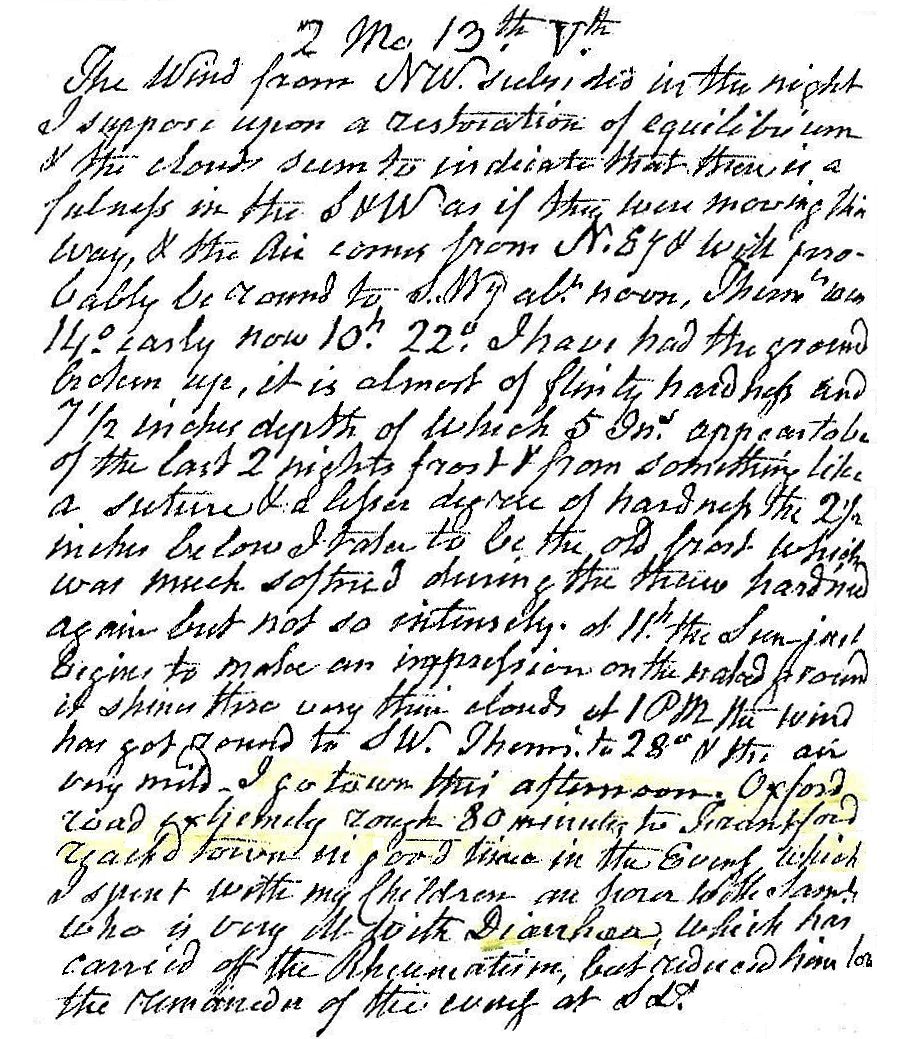 2 Mo 13th Vth
The Wind from NW. subsided in the night
I suppose upon a restoration of equilibrium
& the clouds seem to indicate that there is a
fulness in the S & W as if they were moving this
way, & the Air comes from N. & will pro-
bably be round to S.Wy abt noon, Thermr was
14° early now 10h. 22°. I have had the ground
broken up, it is almost of flinty hardness and
7 1/2 inches depth of which 5 Ins. appears to be
of the last 2 nights frost & from something like
a suture & a lesser degree of hardness the 2 1/2
inches below I take to be the old frost which
was much softned during the thaw hardned
again but not so intensely. at 11h. the Sun just
begins to make an impression on the naked ground
it shines thro very thin clouds at 1 PM the wind
has got round to SW. Therm. to 28° & the air
very mild – I go to town this afternoon. Oxford
road extremely rough 80 minutes to
reachd town in good time in the Eveng which
I spent with my Children an hour with
who is very ill with Diarrhœa, which has
carried off the Rheumatism, but reduced him low
the remainder of the eveng at